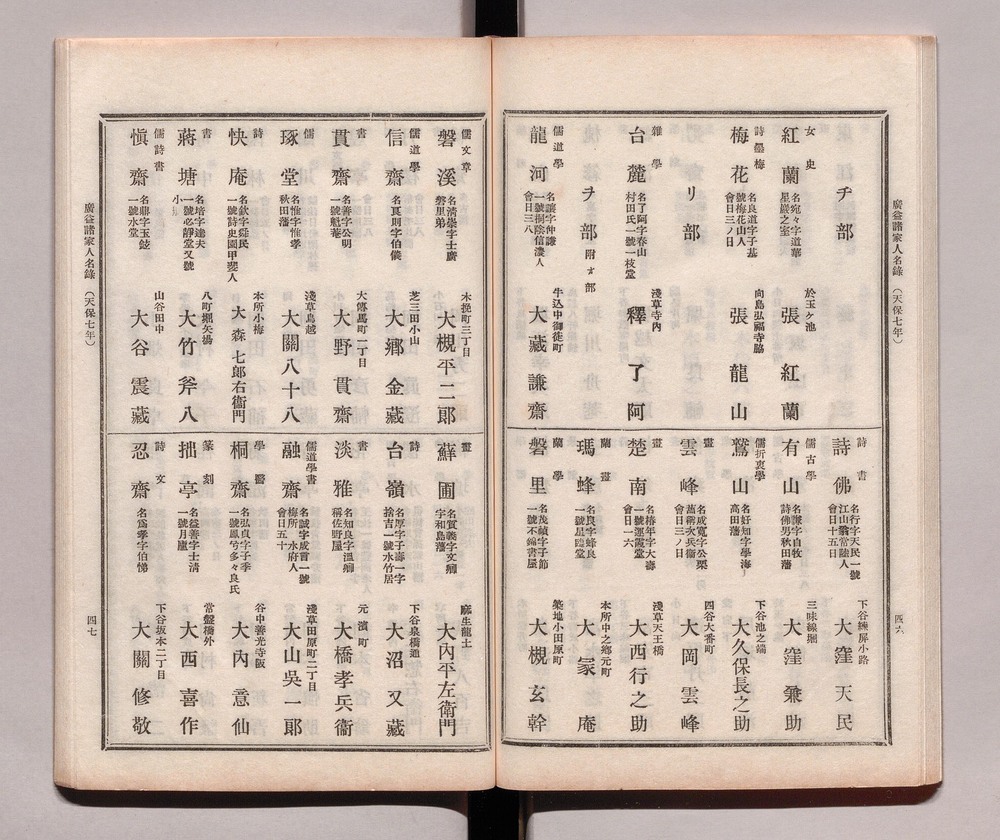 廣益諸家人名錄 (天保七年)
四六
チ部
女史
紅蘭
名宛々字道華
星巖之室
於玉ケ池
張紅蘭
詩墨梅
梅花
名良道字子基
號梅花山人
會日三ノ日
向島弘福寺脇
張龍山
リ部
雜學
台麓
名了阿字春山
村田氏一號一枝堂
淺草寺內
釋了阿
ヲ部 附オ部
儒道學
龍河
名讓字仲謙
一號桐陰信濃人
會日三八
牛込中御徒町
大藏謙齋
詩書
詩佛
名行字天民一號
江山翁常陸人
會日十五日
下谷練屏小路
大窪天民
儒古學
有山
名謙字自牧
詩佛男秋田藩
三味線堀
大窪兼助
儒折衷學
鷲山
名好知字學海
高田藩
下谷池之端
大久保長之助
畫
雲峰
名成寬字公栗
會日三ノ日
四谷大番町
大岡雲峰
畫
楚南
名椿年字大壽
一號運霞堂
會日一六
淺草天王橋
大西行之助
蘭畫
瑪蜂
名良字
本所中之鄉元町
大冡之庵
蘭學
磐里
名茂禎字子節
一號不錦書屋
築地小田原町
大槻玄幹
儒文章
磐溪
名清崇字士廣
磐里弟
木挽町三丁目
大槻平二郎
儒道學
信齋
名良則字伯儀
芝三田小山
大鄉金藏
書
貫齋
名善字公明
一號魁菴
大傳馬町二丁目
大野貫齋
儒
琢堂
名惟字惟孝
秋田藩
淺草鳥越
大關八十八
詩
快庵
名欽字舜民
一號詩史園甲斐人
本所小梅
大森七郎右衞門
書
蔣塘
名培字達夫
一號必靜堂又號
八町堀矢場
大竹斧八
儒詩書
愼齋
一號水堂
山谷田中
大谷震藏
畫
蘇圃
名質義字文瑚
宇和島藩
麻生龍土
大內平左衞門
詩
台嶺
名厚字子壽一字
捨吉一號水竹居
下谷泉橋通
大沼又藏
書
淡雅
名知良字溫卿
稱佐野屋
元濱町
大橋孝兵衞
儒道學書
融齋
名誠字成音一號
梅所一水府人
會日五十
淺草田原町二丁目
大山吳一郎
學醫
桐齋
名弘貞字子季
一號鳳兮多々良氏
谷中善光寺阪
大內意仙
篆刻
拙亭
名益善字士清
一號月廬
常盤橋外
大西喜作
詩文
忍齋
名爲孝字伯悌
下谷坂本二丁目
大關修敬
廣益諸家人名錄 (天保七年)
四七